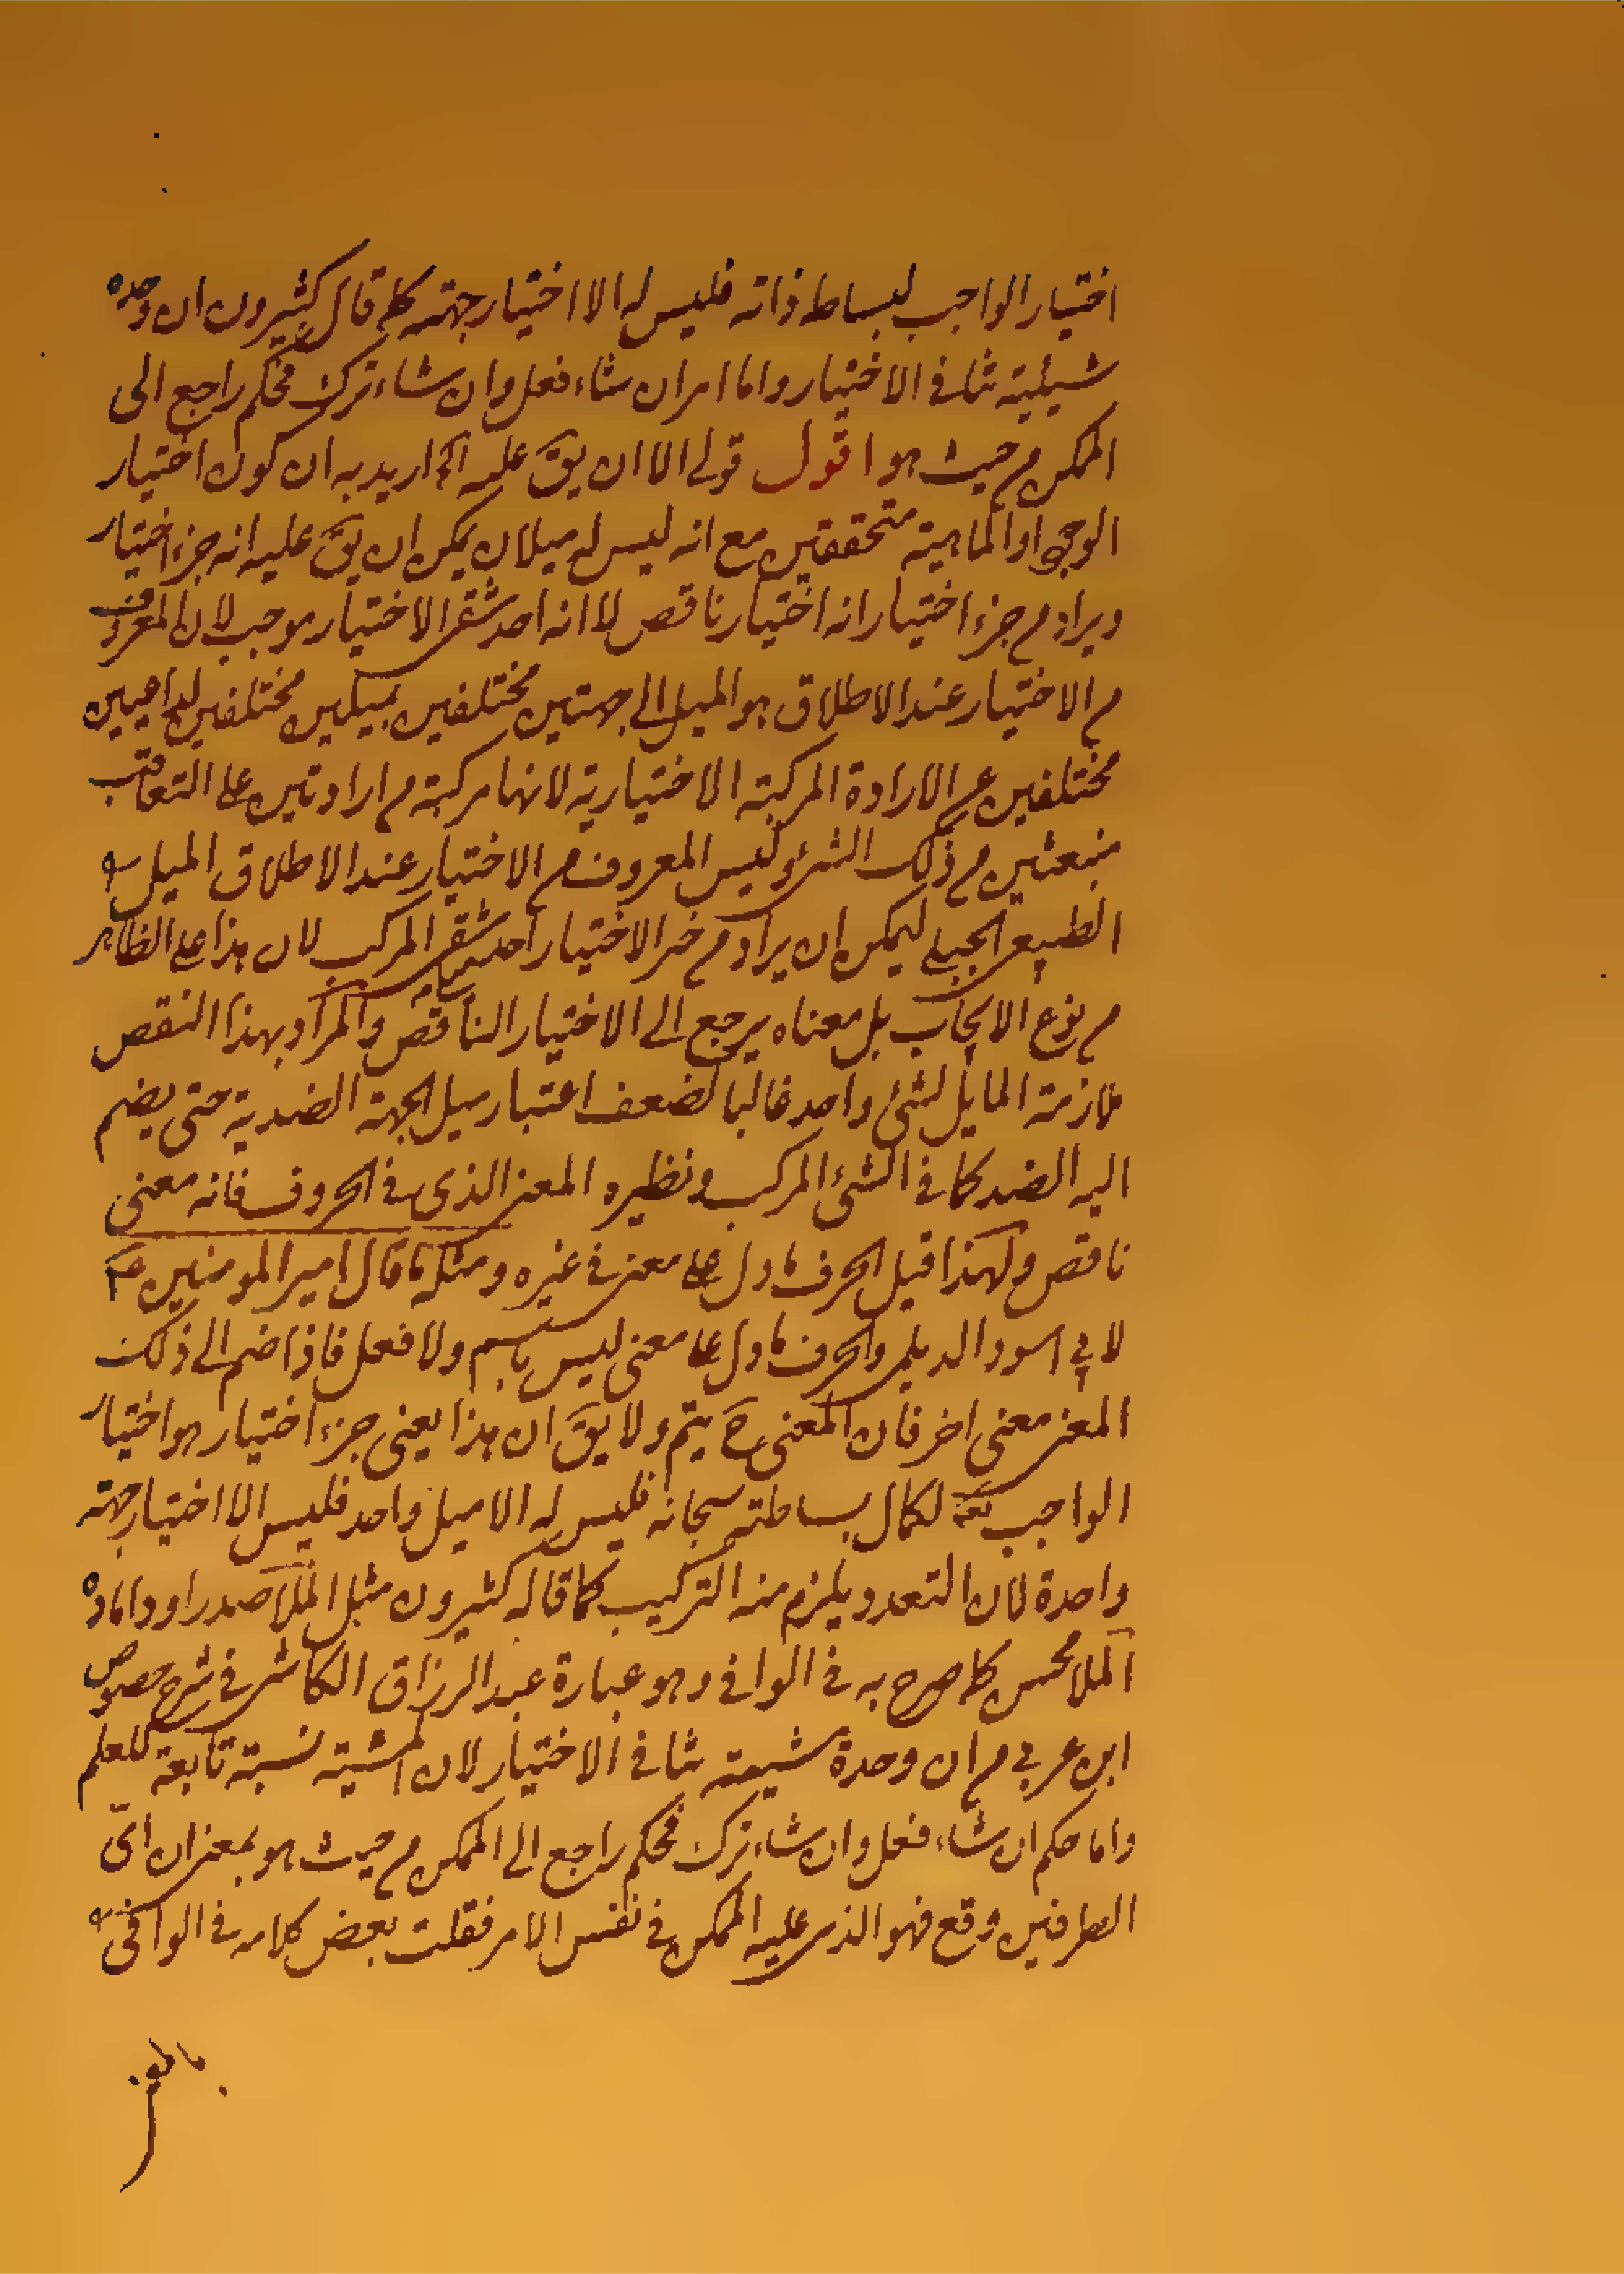 اختيار الواجب لبساطة ذاته فليس له الا اختيار جهته كما قال كثيرون ان وحده
شيئية تنافى الاختيار واما امر ان شاء فعل وان شاء ترك فحكم راجع الى
الممكن م حيث هو اقول قولى الا ان يق عليه الخ اريد به ان كون اختيار
الوجود او الماهية متحققتين مع انه ليس له ميلان يمكن ان يق عليه انه جزء اختيار
ويراد م جزء اختيار انه اختيار ناقص لا انه احد شقى الاختيار موجب لان المعروف
م الاختيار عند الاطلاق هو الميل الى جهتين مختلفين بميلين مختلفين لداعيين
مختلفين عن الارادة المركبة الاختيارية لانها مركبة م ارادتين على التعاقب
منبعثين م ذلك الشىء وليس المعروف م الاختيار عند الاطلاق الميل
الطبيعى الجبلى ليمكن ان يراد م جزء الاختيار احد شقى المركب لان هذا على الظاهر
م نوع الايجاب بل معناه يرجع الى الاختيار الناقص والمراد بهذا النقص
ملازمة المايل لشئ واحد غالبا لضعف اعتبار ميل الجهة الضدية حتى يضم
اليه الضد كما فى الشئ المركب ونظيره المعنى الذى فى الحروف فانه معنى
ناقص ولهذا قيل الحرف ما دل على معنى فى غيره ومثله ما قال امير المومنين ع
لابى اسود الديلمى والحرف ما دل على معنى ليس باسم ولا فعل فاذا ضم الى ذلك
المعنى معنى اخر فان المعنى ح يتم ولا يق ان هذا يعنى جزء اختيار هو اختيار
الواجب تع لكمال بساطته سبحانه فليس له الا ميل واحد فليس الا اختيار جهته
واحدة لان التعدد يلزم منه التركيب كما قاله كثيرون مثل الملا صدرا وداماده
الملا محسن كما صرح به فى الوافى وهو عبارة عبد الرزاق الكاشى فى شرح فصوص
ابن عربى م ان وحدة مشيته تنافى الاختيار لان المشية نسبة تابعة للعلم
واما حكم ان شاء فعل وان شاء ترك فحكم راجع الى الممكن م حيث هو بمعنى ان اىّ
الطرفين وقع فهو الذى عليه الممكن فى نفس الامر فقلت بعض كلامه فى الوافى